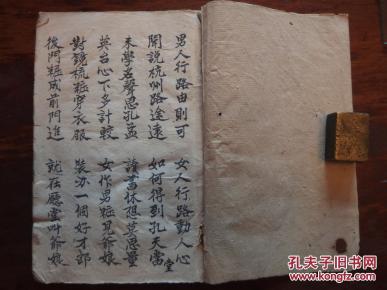 男人行路由則可 女人行路動人心
聞說杭州路途遠 如何得到孔天堂
未學名聲思孔孟 讀書休隐莫思量
英台心下多計較 女作男粧見爺娘
對鏡梳粧穿衣服 裝办一個好才郎
後門粧成前門進 就在廳堂叫爺娘
孔夫子旧书网
KONGFZ.COM